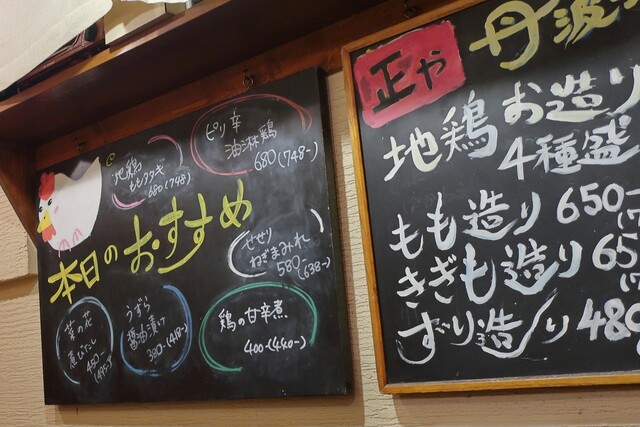 本日のおすすめ
地鶏
ももタタキ
680(748)
ピリ辛
油淋鶏
680(748-)
せせり
ねぎまみれ
580-
(638-)
菜の花
煮びたし
450-
(495-)
うずら
醤油漬け
380-(418-)
鶏の甘辛煮
400-(440-)
正や
丹波
地鶏お造り
4種盛
もも造り 650-
きぎも造り 65
ずり造り 480